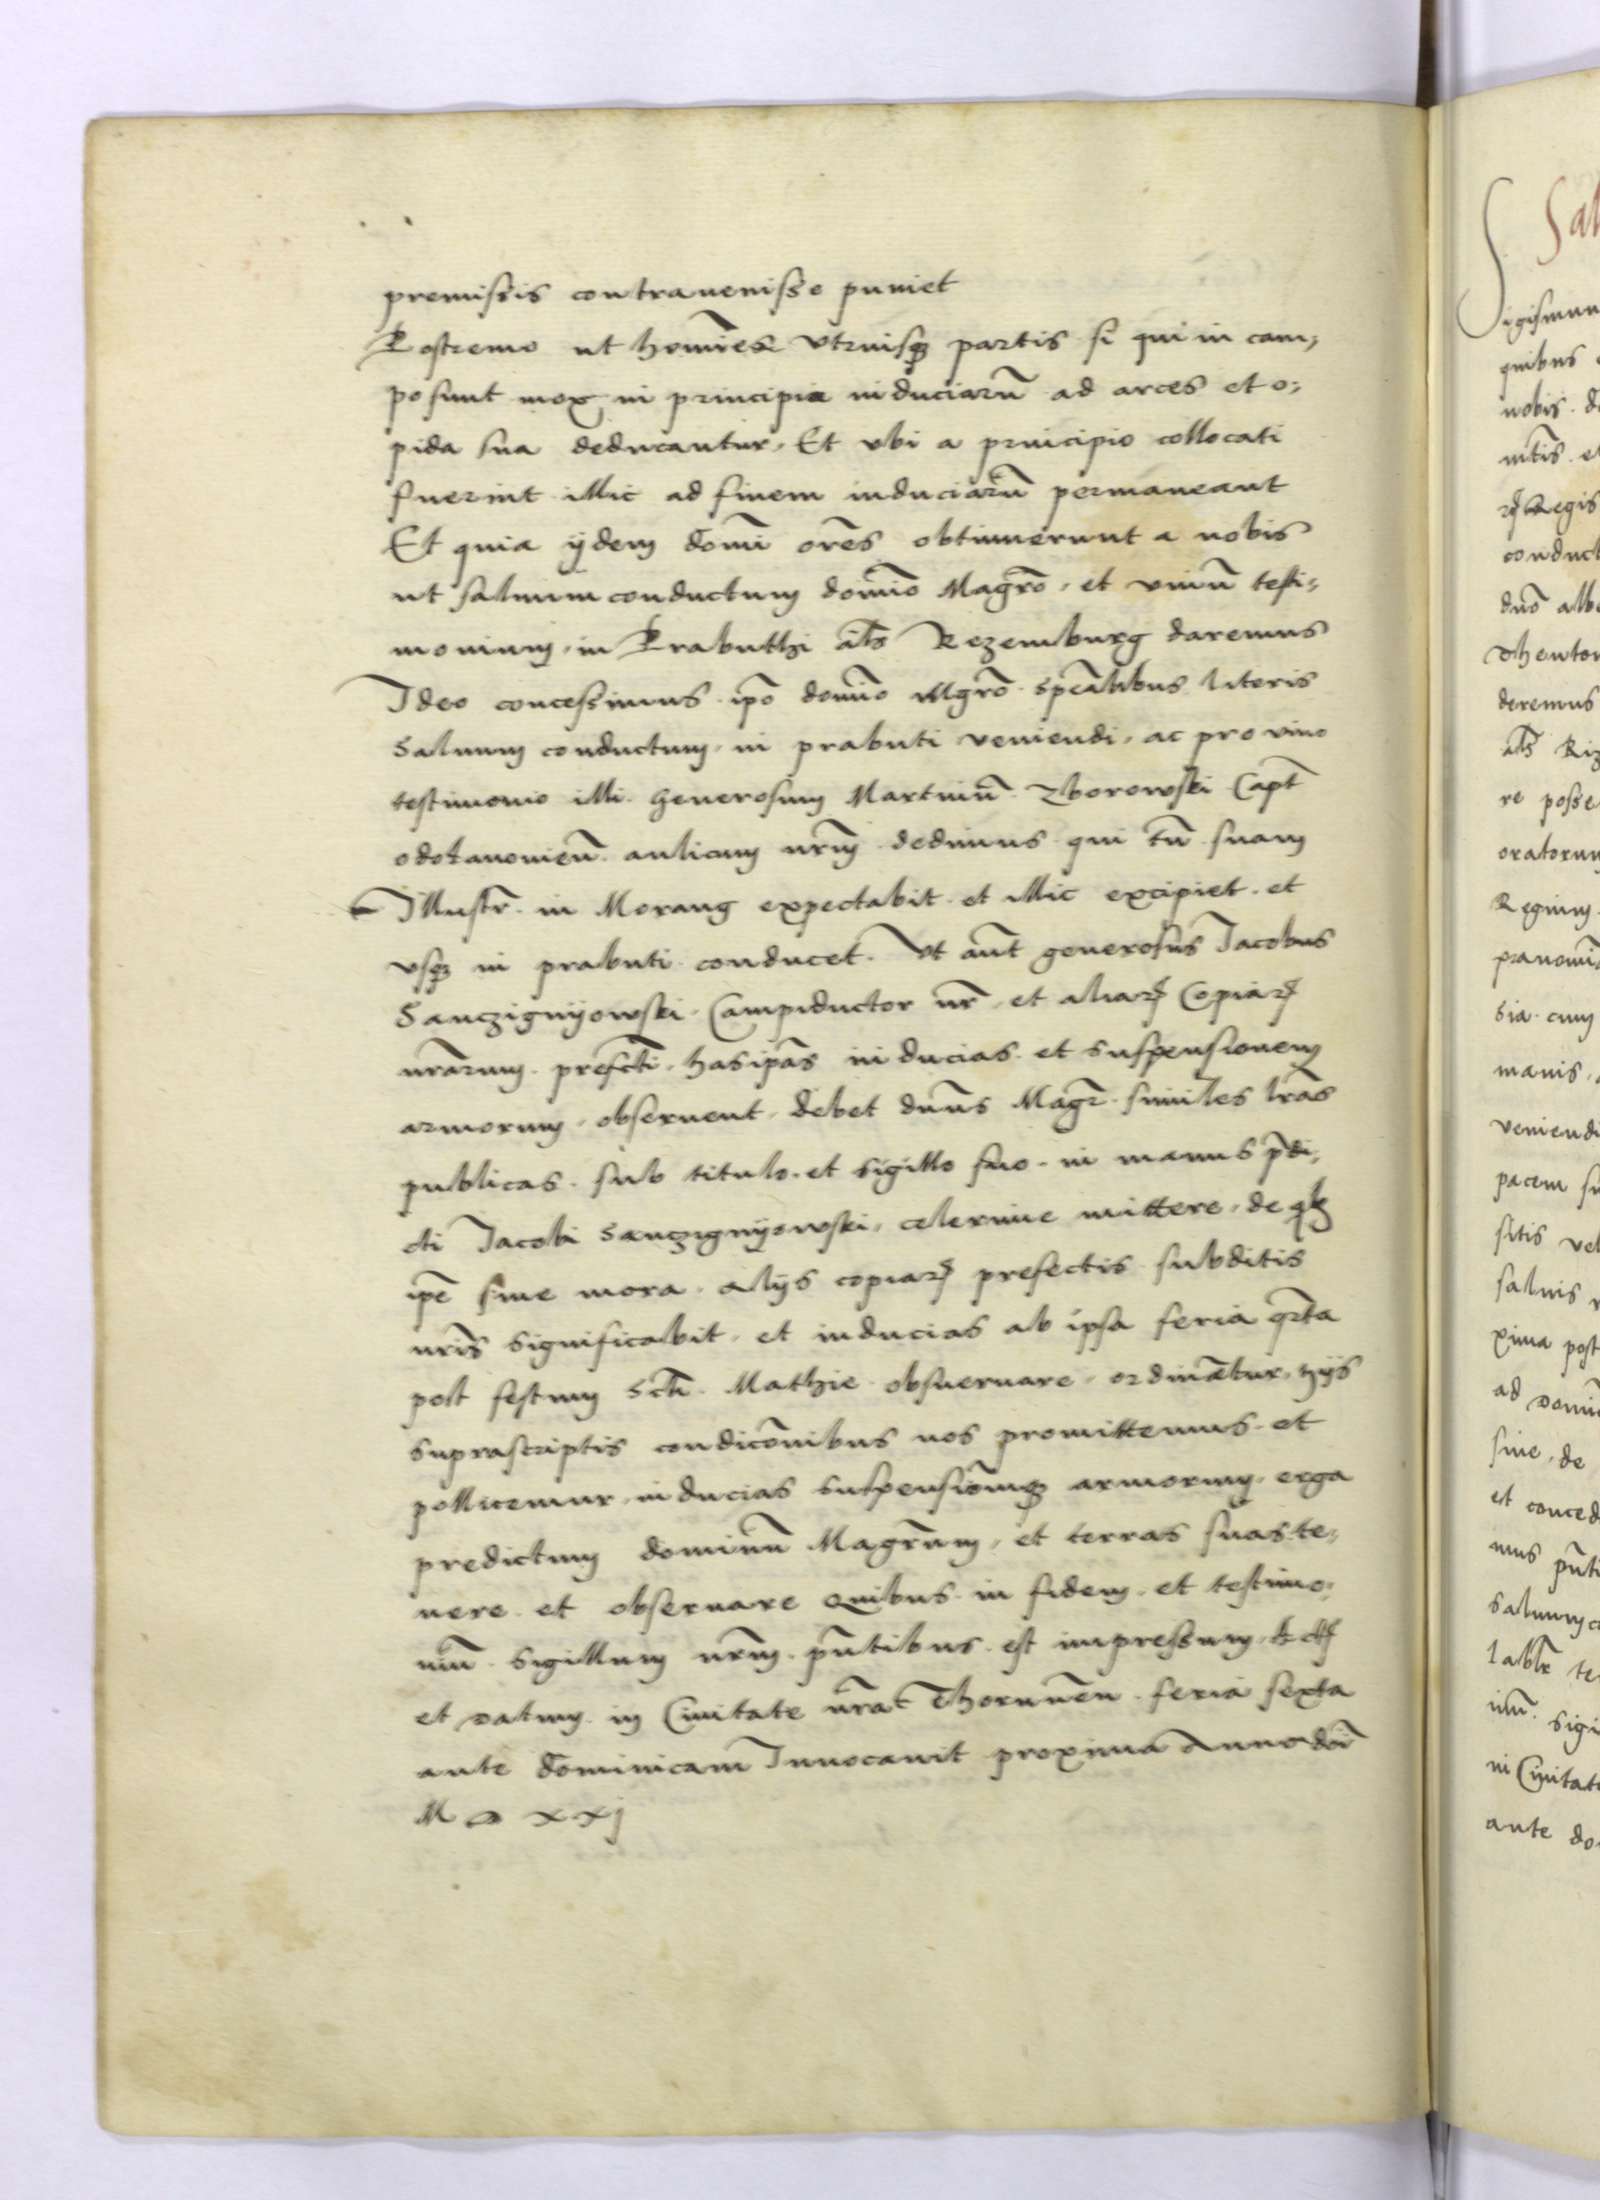 premissis contravenisse puniet
Postremo ut homĩes utriusqꝫ partis si qui in cam⸗
po sunt mox in principia induciarũ ad arces et o⸗
pida sua deducantur, Et ubi a principio collocati
fuerint illic ad finem induciarũ permaneant
Et quia ijdem domĩ orẽs obtinuerunt a nobis
ut saluum conductum domĩo Magrõ, et vinũ testi⸗
monium, in Prabuthi al̃s Rezemburg daremus
Ideo concessimus ip̃o domĩo Mgrõ speãlibus literis
saluum conductum, in prabuti veniendi, ac pro vino
testimonio illi generosum Martinũ Zborowski Capt̃
odolanovieñ aulicum nr̃m dedimus qui tñ suam
Illustr̃ in Morang expectabit et illic excipiet et
usqꝫ in prabuti conducet. Ut aũt generosus Jacobus
Sanczignyowski Campiductor nr̃ et aliarꝝ Copiarꝝ
nr̃arum prefcti, has ip̃as inducias et suspensionem
armorum, observent, debet dñus Magr̃ similes lr̃as
publicas sub titulo et sigillo suo in manus p̃di⸗
cti Jacobi Sanczignyowski, celerime mittere, de qb̃ꝫ
ip̃e sine mora alijs copiarꝝ prefectis subditis
nr̃is significabit, et inducias ab ipsa feria qr̃ta
post festum Sc̃ti Mathie obsuervare, ordinabtur, hijs
suprascriptis condicõnibus nos promittemus et
pollicemur, inducias suspensionẽqꝫ armorum, erga
predictum dominũ Magr̃um, et terras suas te⸗
nere et observare Quibus in fidem et testimo⸗
niũ sigillum nr̃m p̃ntibus est impressum,
et datum in Civitate nr̃a Thoruneñ feria sexta
ante dominicam Invocavit proxima Anno dñi
M D xxj
Sal
Sigismun
quibus
nobis d
ntĩs et
rꝝ Regis
conduct
dnõ alb
theuton
deremus
al̃s Riz
re posse
oratorum
Regium
pranomi
sia cum
manis,
veniendi
pacem su
sitis vel
salvis
xima post
ad domin
sine, de
et conced
mus p̃nti
salvum c
labr̃ te
niũ sigi
in Civitat
ante do